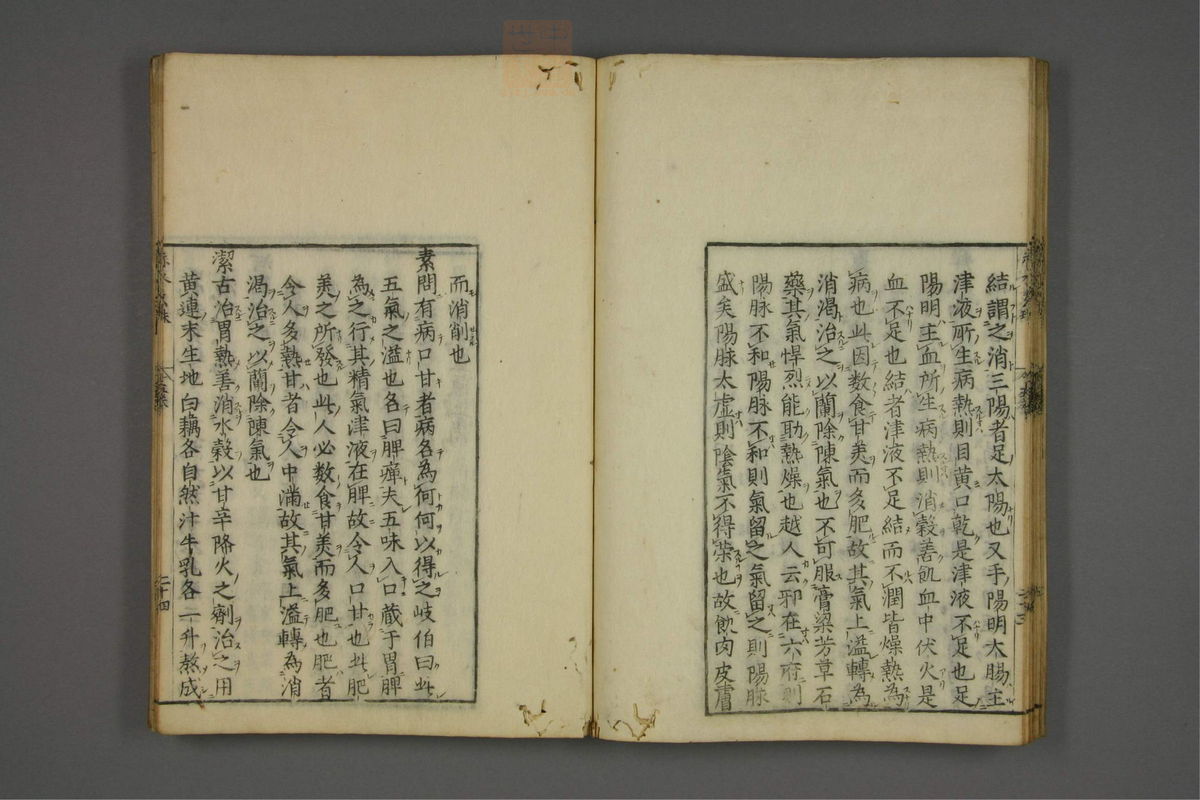 結謂之消三陽者足太陽也又手陽明大腸主
津液所生病熱則目黄口乾是津液不足也足
陽明主血所生病熱則消穀善飢血中伏火是
血不足也結者津液不足結而不潤皆燥熱為
病也此因数食甘美而多肥故其氣上溢轉為
消渇治之以蘭除陳氣也不可服膏梁芳草石
藥其氣悍烈能助熱燥也越人云邪在六府則
陽脉不和陽脉不和則氣留之氣留之則陽脉
盛矣陽脉太虚則陰氣不得榮也故飲肉皮膚
而消削也
素問有病口甘者病名為何何以得之岐伯曰此
五氣之溢也名曰脾癉夫五味入口蔵于胃脾
為之行其精氣津液在脾故令人口甘也此肥
美之所發也此人必数食甘美而多肥也肥者
令人多熱甘者令人中滿故其氣上溢轉為消
渇治之以蘭除陳氣也
潔古治胃熱善消水穀以甘辛降火之劑治之用
黄連末生地白藕各自然汁牛乳各一升熬成
二十四